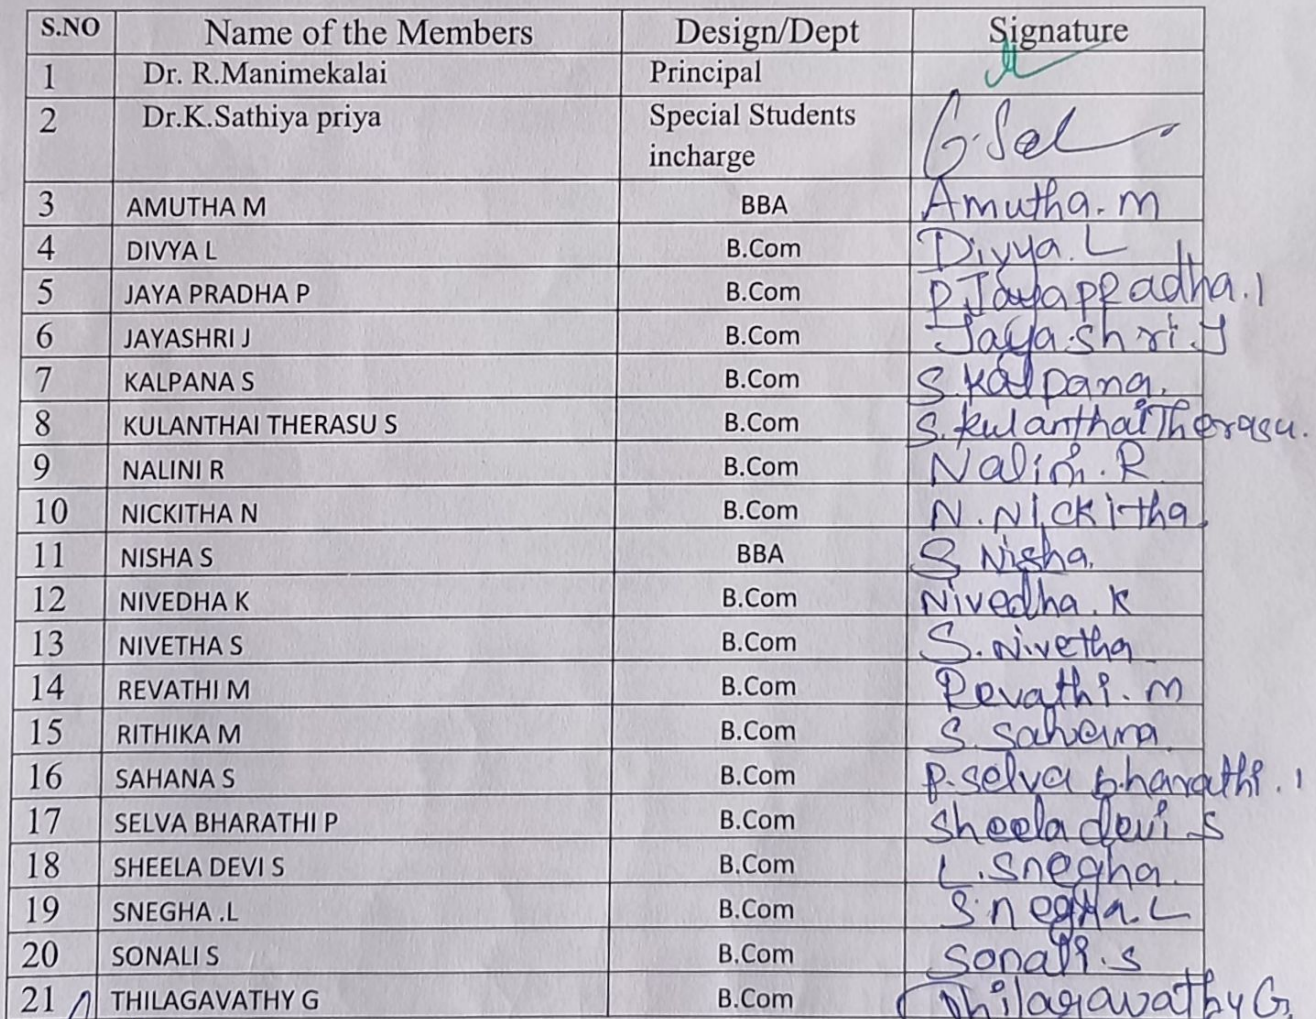 S.NO Name of the Members Design/Dept Signature
1 Dr. R.Manimekalai Principal
2 Dr.K.Sathiya priya Special Students
incharge
3 AMUTHA M BBA Amutha. m
4 DIVYA L B.Com Divya. L
5 JAYA PRADHA P B.Com P.Jayappadha.
6 JAYASHRI J B.Com Jayashri.J
7 KALPANA S B.Com S.kalpana.
8 KULANTHAI THERASU S B.Com S.kulanthaiTherasu.
9 NALINI R B.Com Nalini. R
10 NICKITHA N B.Com N. Nickitha.
11 NISHA S BBA S Nisha.
12 NIVEDHA K B.Com Nivedha. K
13 NIVETHA S B.Com S. Nivetha
14 REVATHI M B.Com Revathi. m
15 RITHIKA M B.Com S.
16 SAHANA S B.Com P.selva bharathi.
17 SELVA BHARATHI P B.Com Sheela devi S
18 SHEELA DEVI S B.Com L.Snegha.
19 SNEGHA .L B.Com Snegha. L
20 SONALI S B.Com Sonali.s
21 THILAGAVATHY G B.Com Thilagavathy G.